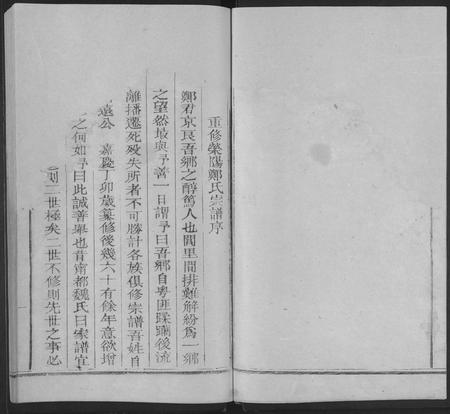 重修滎陽鄭氏宗譜序
鄭君京良吾鄉之醇篤人也閭里間排難解紛爲一鄉
之望然最與予善一日謂予曰吾鄉自粵匪蹂躪後流
離播遷死歿失所者不可勝計各族俱修宗譜吾姓自
遠公 嘉慶丁卯歲纂修後幾六十有餘年意欲增
之何如予曰此誠善舉也昔南都魏氏曰家譜宜
則二世極矣二世不修則先世之事必